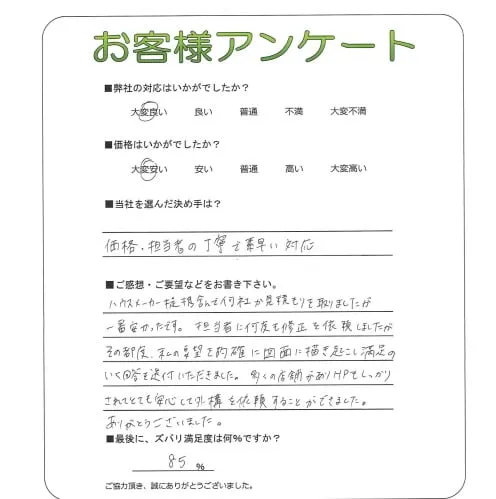 お客様アンケート
■弊社の対応はいかがでしたか？
大変良い 良い 普通 不満 大変不満
■価格はいかがでしたか？
大変安い 安い 普通 高い 大変高い
■当社を選んだ決め手は？
価格・担当者の丁寧で素早い対応
■ご感想・ご要望などをお書き下さい。
ハウスメーカー提携含んで何社か見積もりを取りましたが
一番安かったです。担当者に何度も修正を依頼しましたが
その都度、私の要望を的確に図面に描き起こし満足の
いく回答を送付いただきました。多くの店舗がありHPもしっかり
されてとても安心して外構を依頼することができました。
ありがとうございました。
■最後に、ズバリ満足度は何%ですか？
85 %
ご協力頂き、誠にありがとうございました。